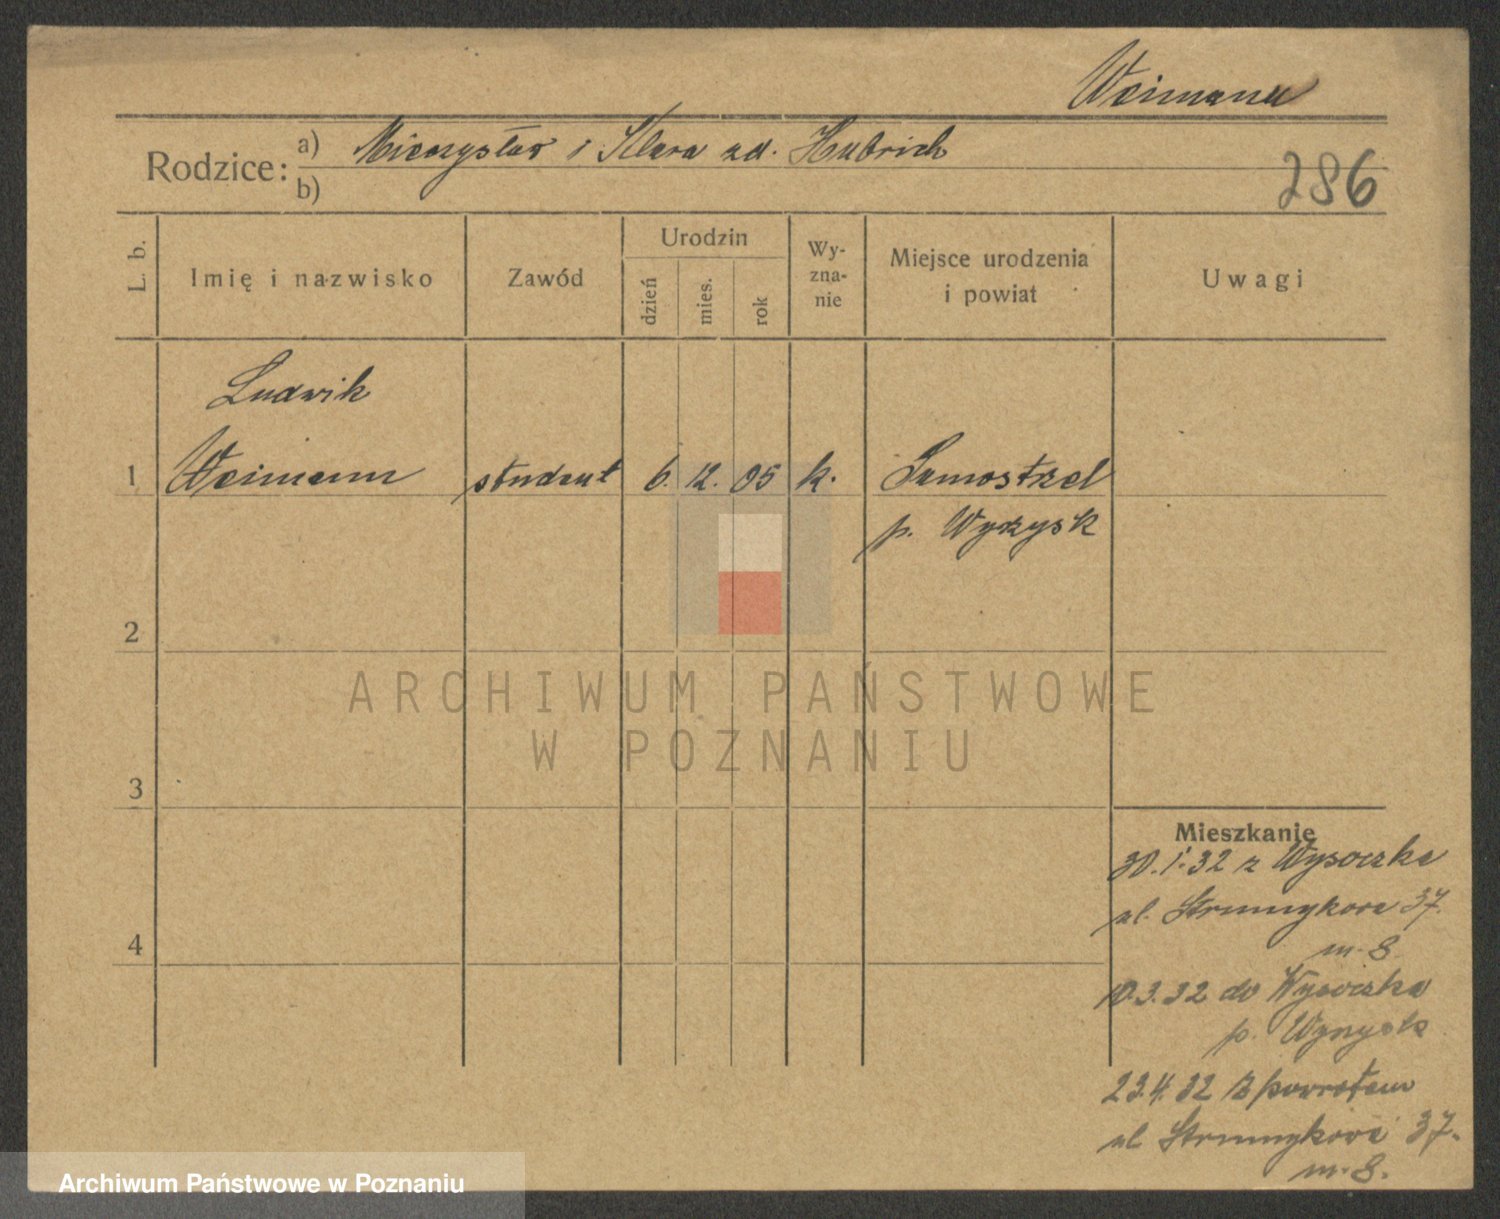 Weimann
Rodzice: a) Mieczysław i Klara zd. Hubrich
b)
286
L. b.
Imię i nazwisko
Zawód
Urodzin
dzień
mies.
rok
Wy-
zna-
nie
Miejsce urodzenia
i powiat
Uwagi
Ludwik
1 Weimann student 6. 12. 05 k. Samostrzel
p. Wyrzysk
2
ARCHIWUM PAŃSTWOWE
W POZNANIU
3
Mieszkanie
30.1.32 z Wysoczka
ul. Strumykowa 37.
m. 8.
4
10.3.32 do Wysoczka
p. Wyrzysk
23.4.32 z powrotem
ul. Strumykowa 37.
m. 8.
Archiwum Państwowe w Poznaniu